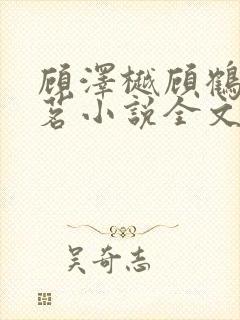 顾泽樾顾鹤
茗小说全文
吴奇志